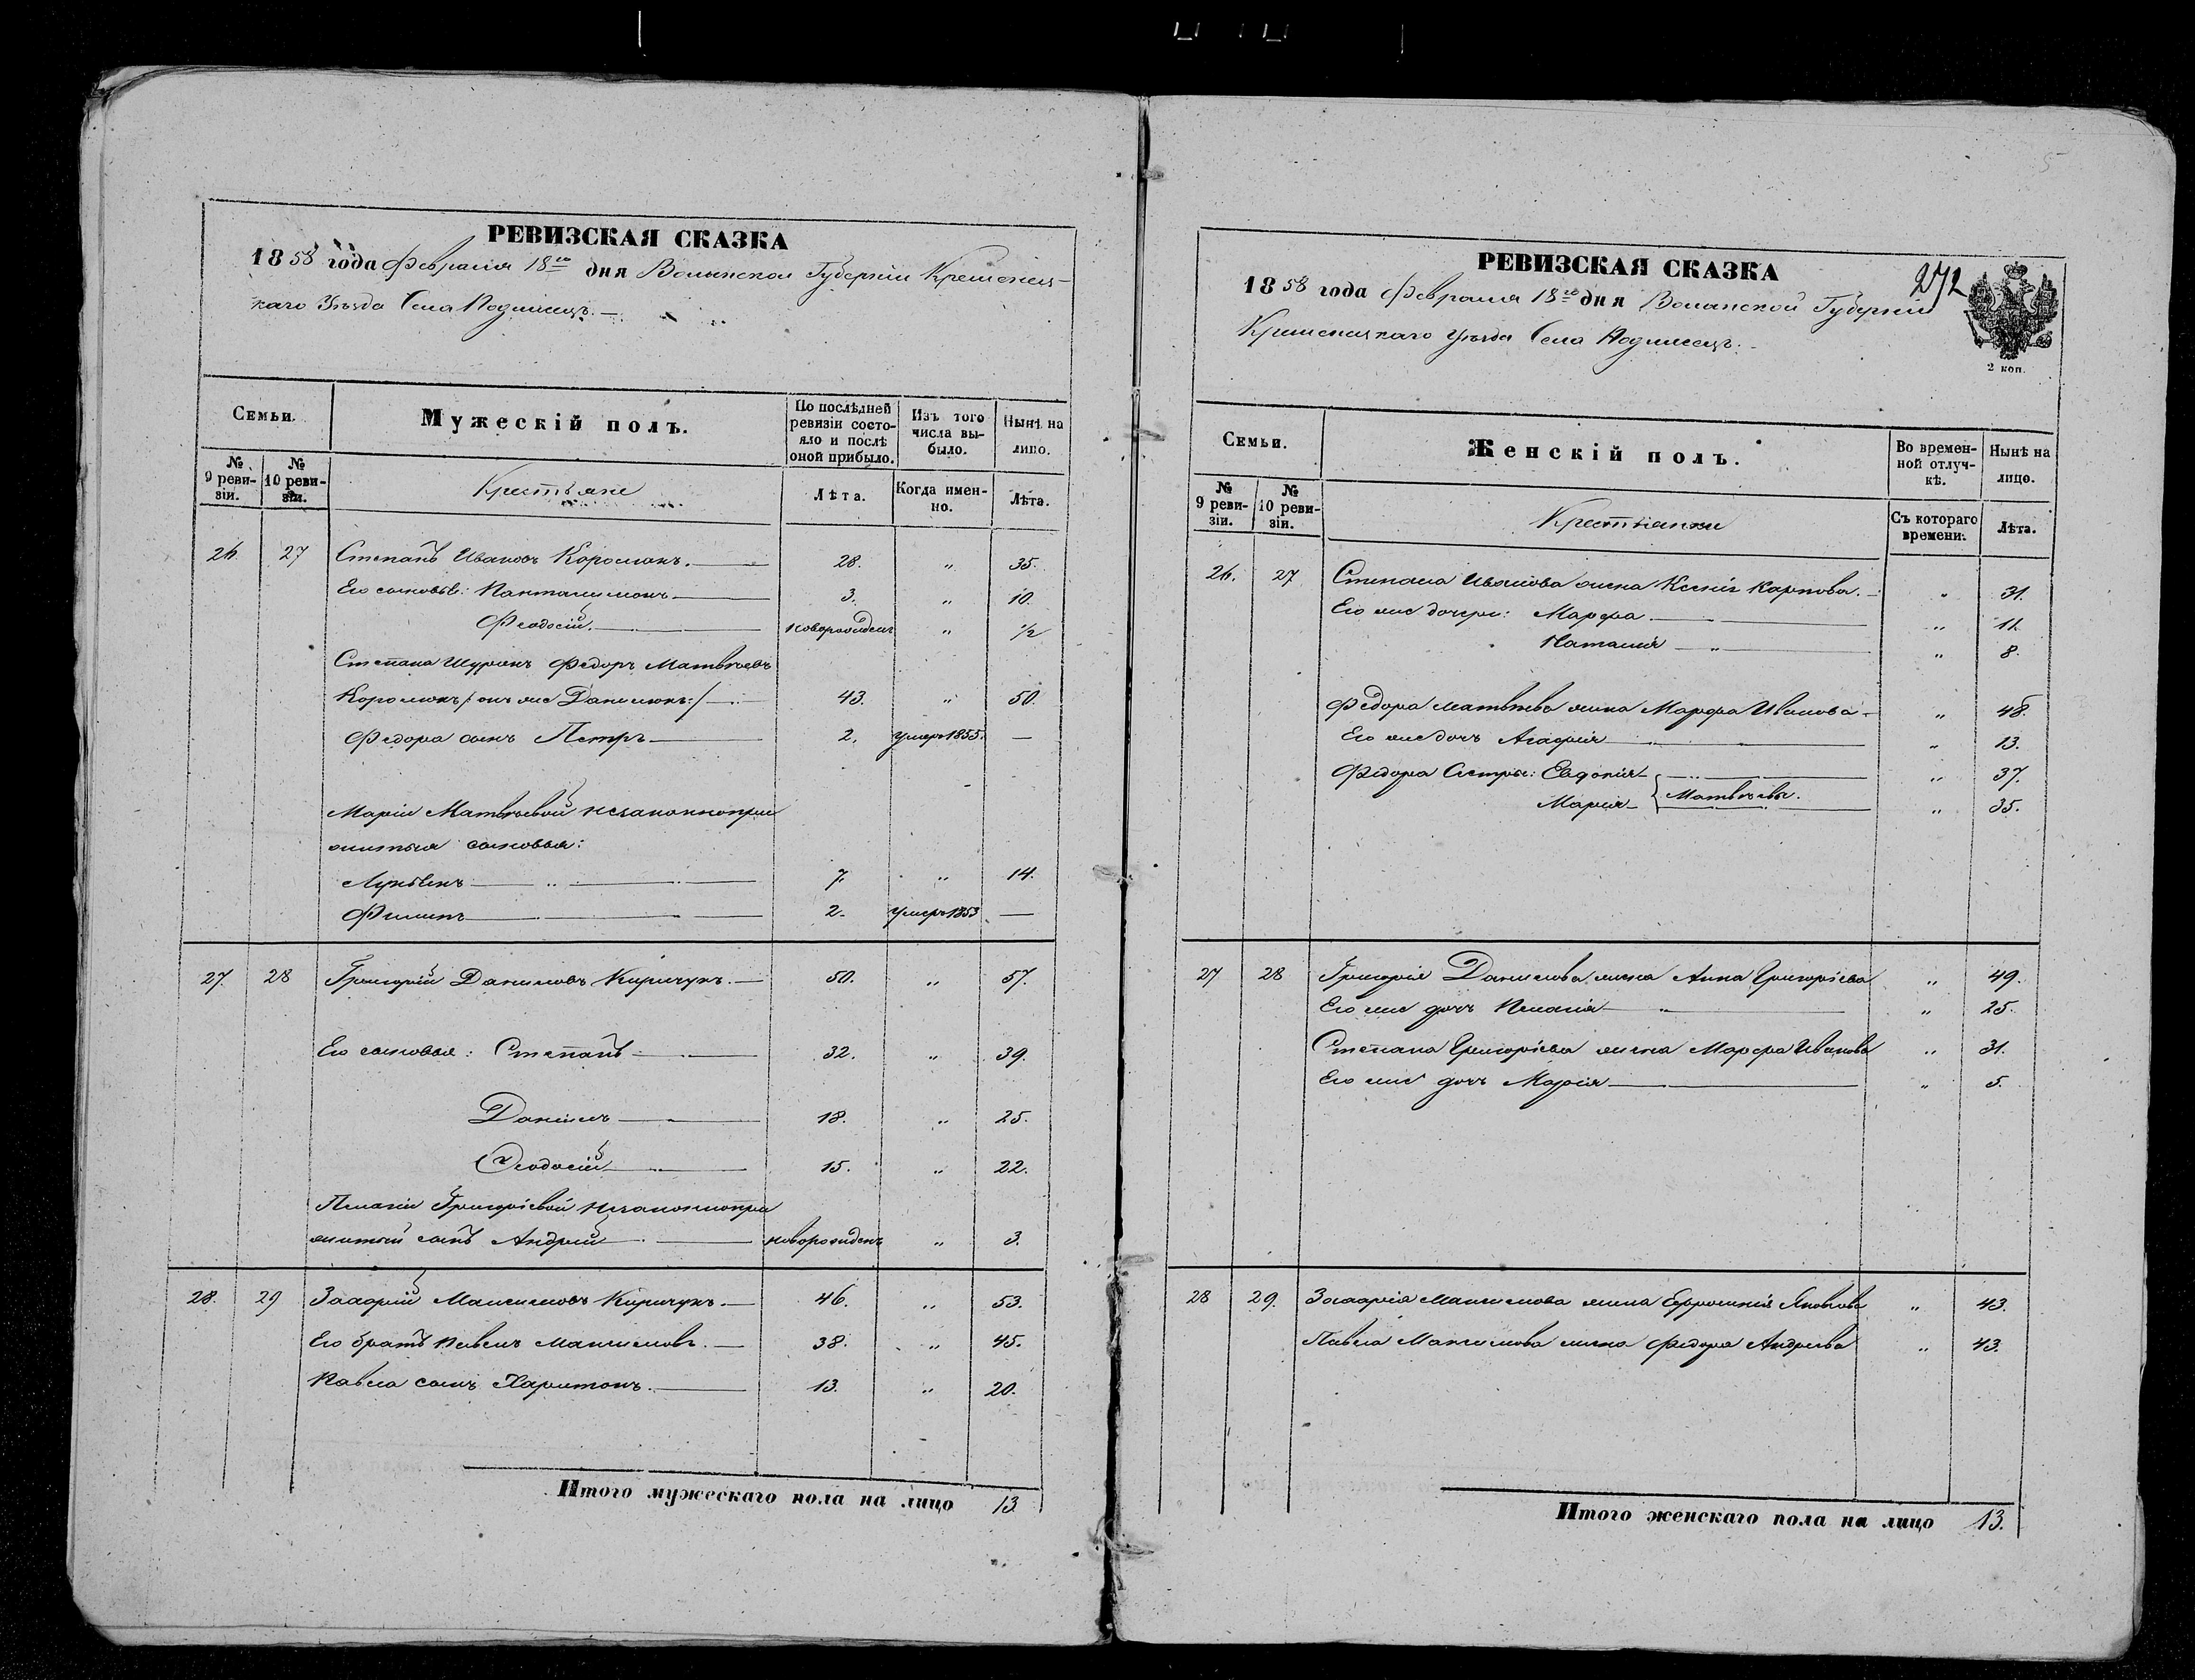 РЕВИЗСКАЯ СКАЗКА
1858 года Февраля 18го дня Волынской Губерніи Кременец-
каго Уѣзда Села Подлисецъ.
Семьи.
Мужескій полъ.
По послѣдней ревизіи состояло и послѣ оной прибыло.
Изъ того числа выбыло.
Нынѣ на лицо.
№ 9 ревизіи.
№ 10 ревизіи.
Крестьяне
Лѣта.
Когда именно.
Лѣта.
26 27 Степанъ Ивановъ Королюкъ. 28. „ 35.
Его сыновья: Панталимонъ 3. „ 10.
Феодосій. новорожденъ „ 1/2
Степана Шуринъ Федоръ Матвѣевъ
Королюкъ /: онъ же Данилюкъ :/ 43. „ 50.
Федора сынъ Петръ 2. умеръ 1855. —
Маріи Матвѣевой незаконнопри
житыя сыновья:
Лукьянъ 7. „ 14.
Филипъ 2. умеръ 1853 —
27. 28 Григорій Даниловъ Киричукъ. 50. „ 57.
Его сыновья: Степанъ 32. „ 39.
Данилъ 18. „ 25.
Феодосій 15. „ 22.
Пелагіи Григоріевой незаконнопри
житый сынъ Андрей новорожденъ „ 3.
28. 29 Захарій Максимовъ Киричукъ. 46. „ 53.
Его братъ Павелъ Максимовъ. 38. „ 45.
Павла сынъ Харитонъ. 13. „ 20.
Итого мужескаго пола на лицо 13
РЕВИЗСКАЯ СКАЗКА
272
1858 года Февраля 18го дня Волынской Губерніи
Кременецкаго Уѣзда Села Подлисецъ.
2 коп.
Семьи.
Женскій полъ.
Во временной отлучкѣ.
Нынѣ на лицо.
№ 9 ревизіи.
№ 10 ревизіи.
Крестьянки
Съ котораго времени.
Лѣта.
26. 27 Степана Иванова жена Ксенія Карпова. „ 31.
Его же дочери: Марфа „ 11.
Наталія „ 8.
Федора Матвѣева жена Марфа Иванова „ 48.
Его же дочь Агафія „ 13.
Федора Сестры: Евдокія „ 37.
Марія } Матвѣевы. „ 35.
27 28 Григорія Данилова жена Анна Григоріева „ 49.
Его же дочь Пелагія „ 25.
Степана Григоріева жена Марфа Иванова „ 31.
Его же дочь Марія „ 5.
28 29. Захарія Максимова жена Ефросинія Яковлева „ 43.
Павла Максимова жена Федора Андреева „ 43.
Итого женскаго пола на лицо 13.